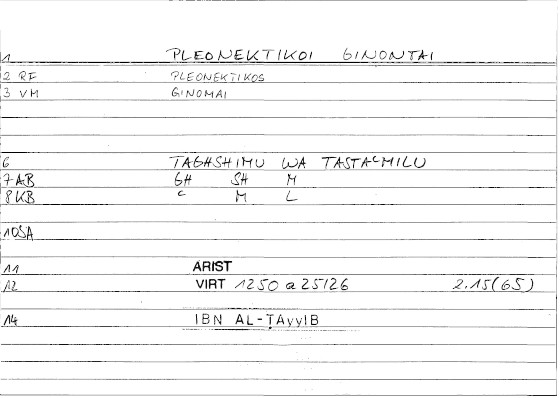 1 PLEONEKTIKOI GINONTAI
2 RF PLEONEKTIKOS
3 VM GINOMAI
6 TAGHSHIMU WA TASTAᶜMILU
7 AB GH SH M
8 KB ᶜ M L
10 SA
11 ARIST
12 VIRT 1250 a 25/26 2.15(65)
14 IBN AL-ṬAYYIB